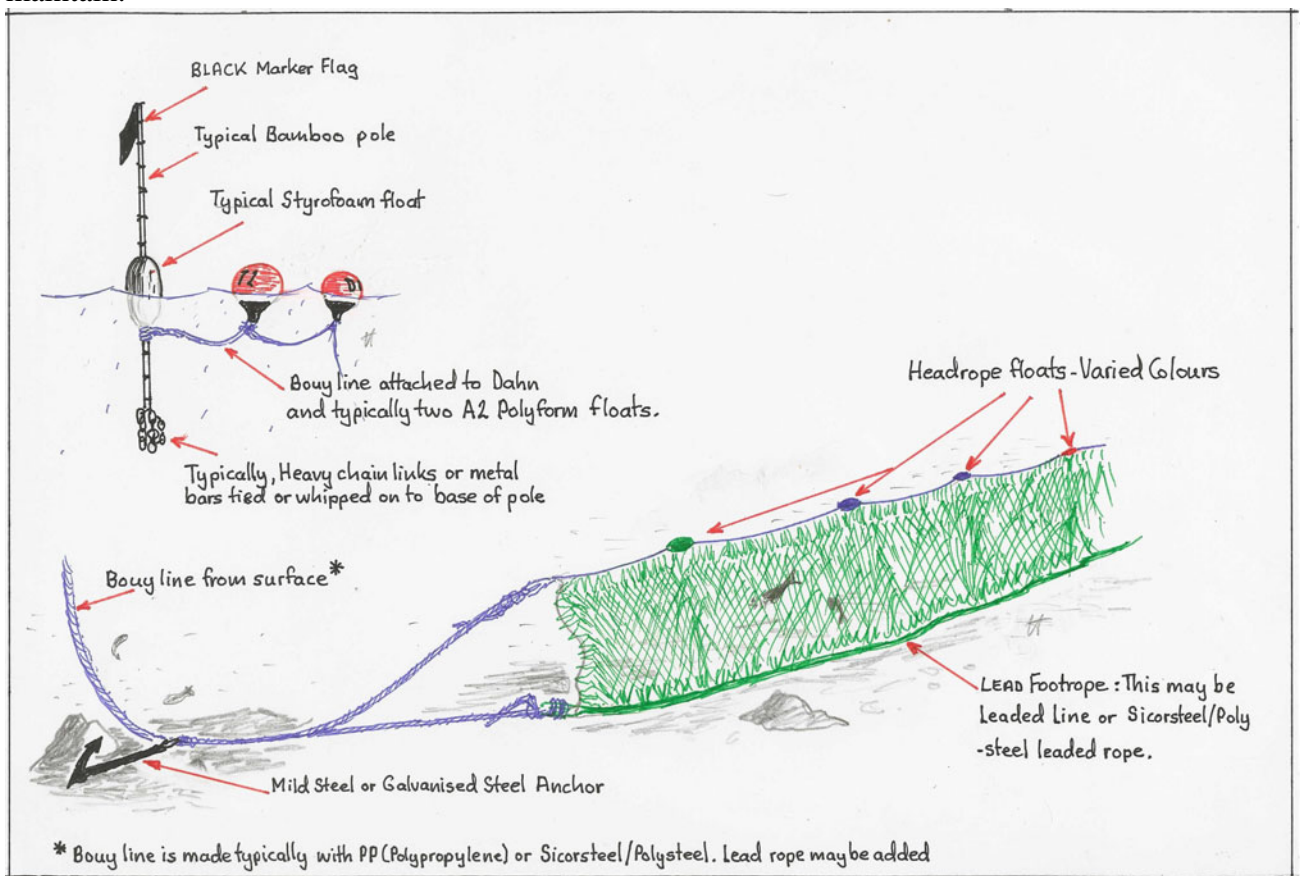 BLACK Marker Flag
Typical Bamboo pole
Typical Styrofoam float
T2
D
Bouy line attached to Dahn
and typically two A2 Polyform floats.
Typically, Heavy chain links or metal
bars tied or whipped on to base of pole
Headrope floats - Varied Colours
Bouy line from surface*
LEAD Footrope: This may be
Leaded Line or Sicorsteel/Poly
-steel leaded rope.
Mild Steel or Galvanised Steel Anchor
* Bouy line is made typically with PP (Polypropylene) or Sicorsteel/Polysteel. Lead rope may be added